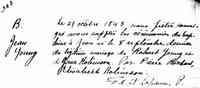 B.
Jean
Young
Le 29 octobre 1843, nous prêtre soussi-
gné avons suppléé les cérémonies du bap-
tême à Jean né le 8 septembre, dernier
du légitime mariage de Robert Young et
de Anne Robinson. Par. Pierre
Elisabeth Robinson.